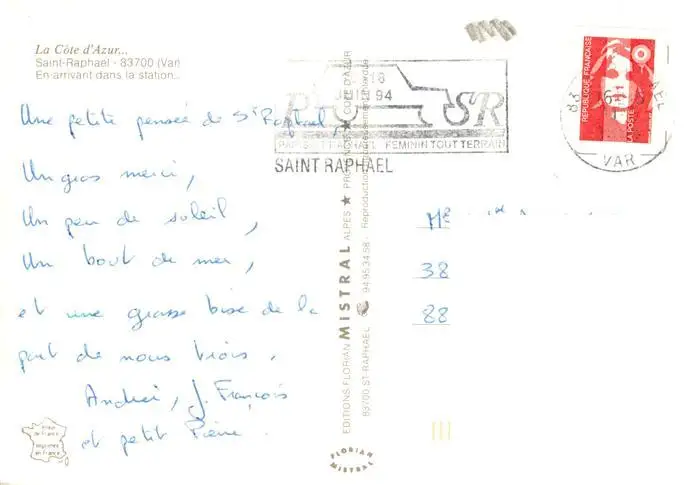 La Côte d'Azur...
Saint-Raphael - 83700 (Var)
En arrivant dans la station...
Une petite pensée de St Raphael,
Un gros merci,
Un peu de soleil,
Un bout de mer,
et une grosse bise de la
part de nous trois.
Andreï, J. François
et petit Pierre.
94
SR
FEMININ TOUT TERRAIN
SAINT RAPHAEL
REPUBLIQUE FRANÇAISE
LA POSTE
83
VAR
38
88
EDITIONS FLORIAN MISTRAL ALPES ★ PROVENCE ★ COTE D'AZUR
83700 ST-RAPHAEL 94.95.34.58 - Reproduction
FLORIAN MISTRAL